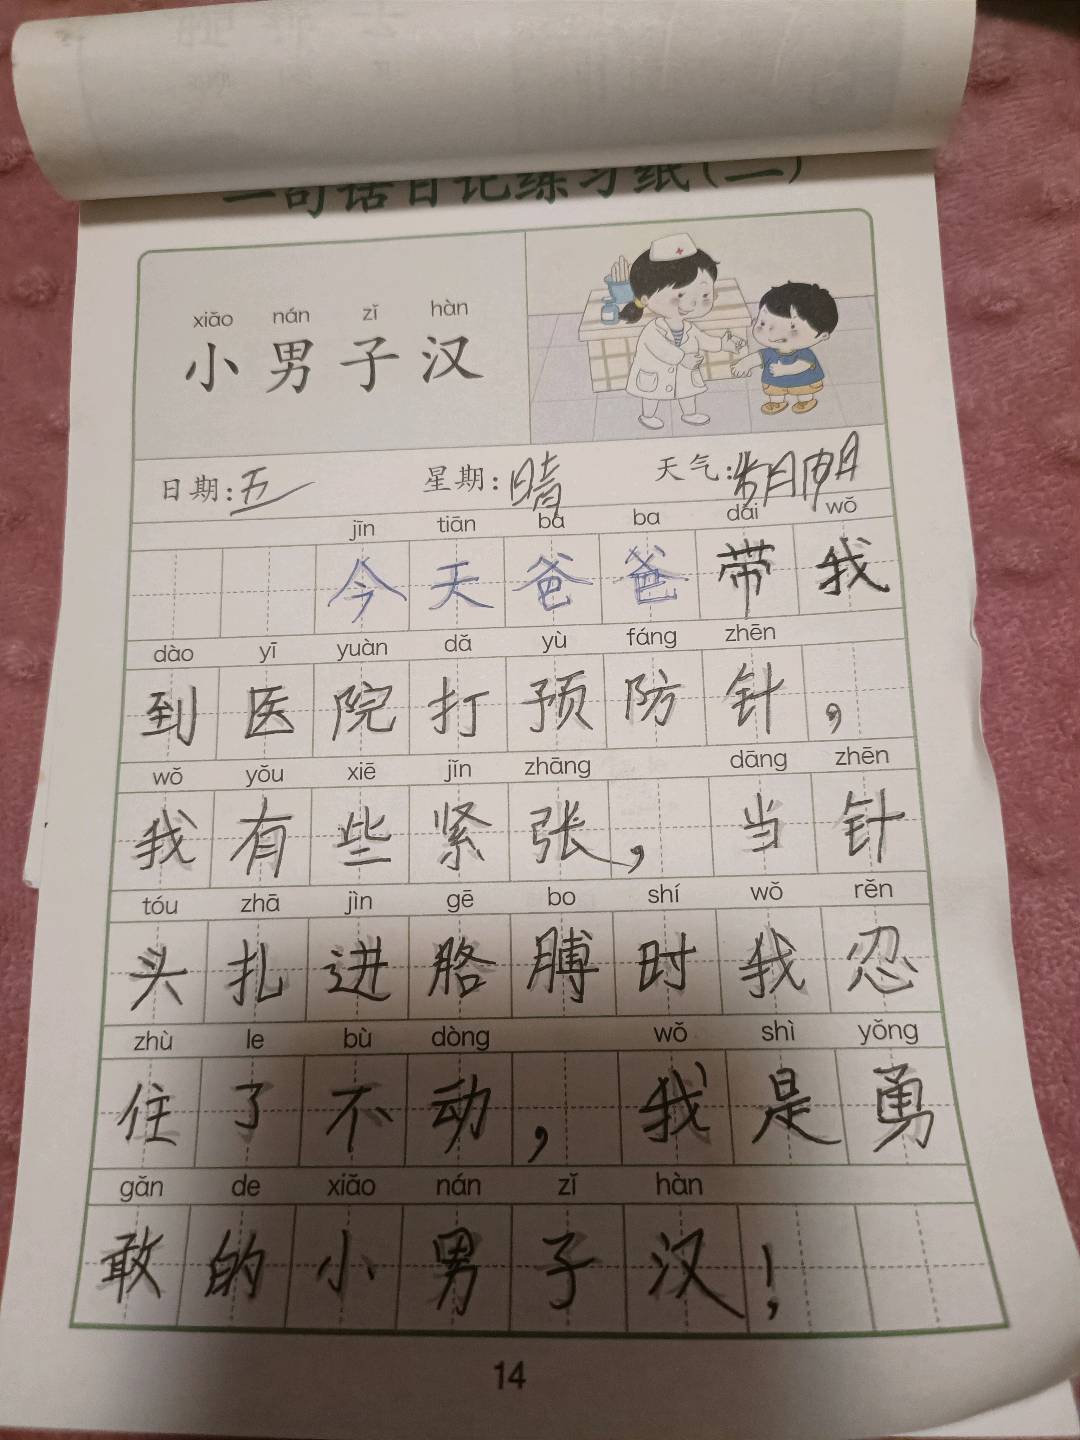 一句话日记练习纸(二)
xiǎo nán zǐ hàn
小男子汉
日期:五 星期:晴 天气:
jīn tiān bà ba dài wǒ
今天爸爸带我
dào yī yuàn dǎ yù fáng zhēn
到医院打预防针，
wǒ yǒu xiē jǐn zhāng dāng zhēn
我有些紧张，当针
tóu zhā jìn gē bo shí wǒ rěn
头扎进胳膊时我忍
zhù le bù dòng wǒ shì yǒng
住了不动，我是勇
gǎn de xiǎo nán zǐ hàn
敢的小男子汉！
14